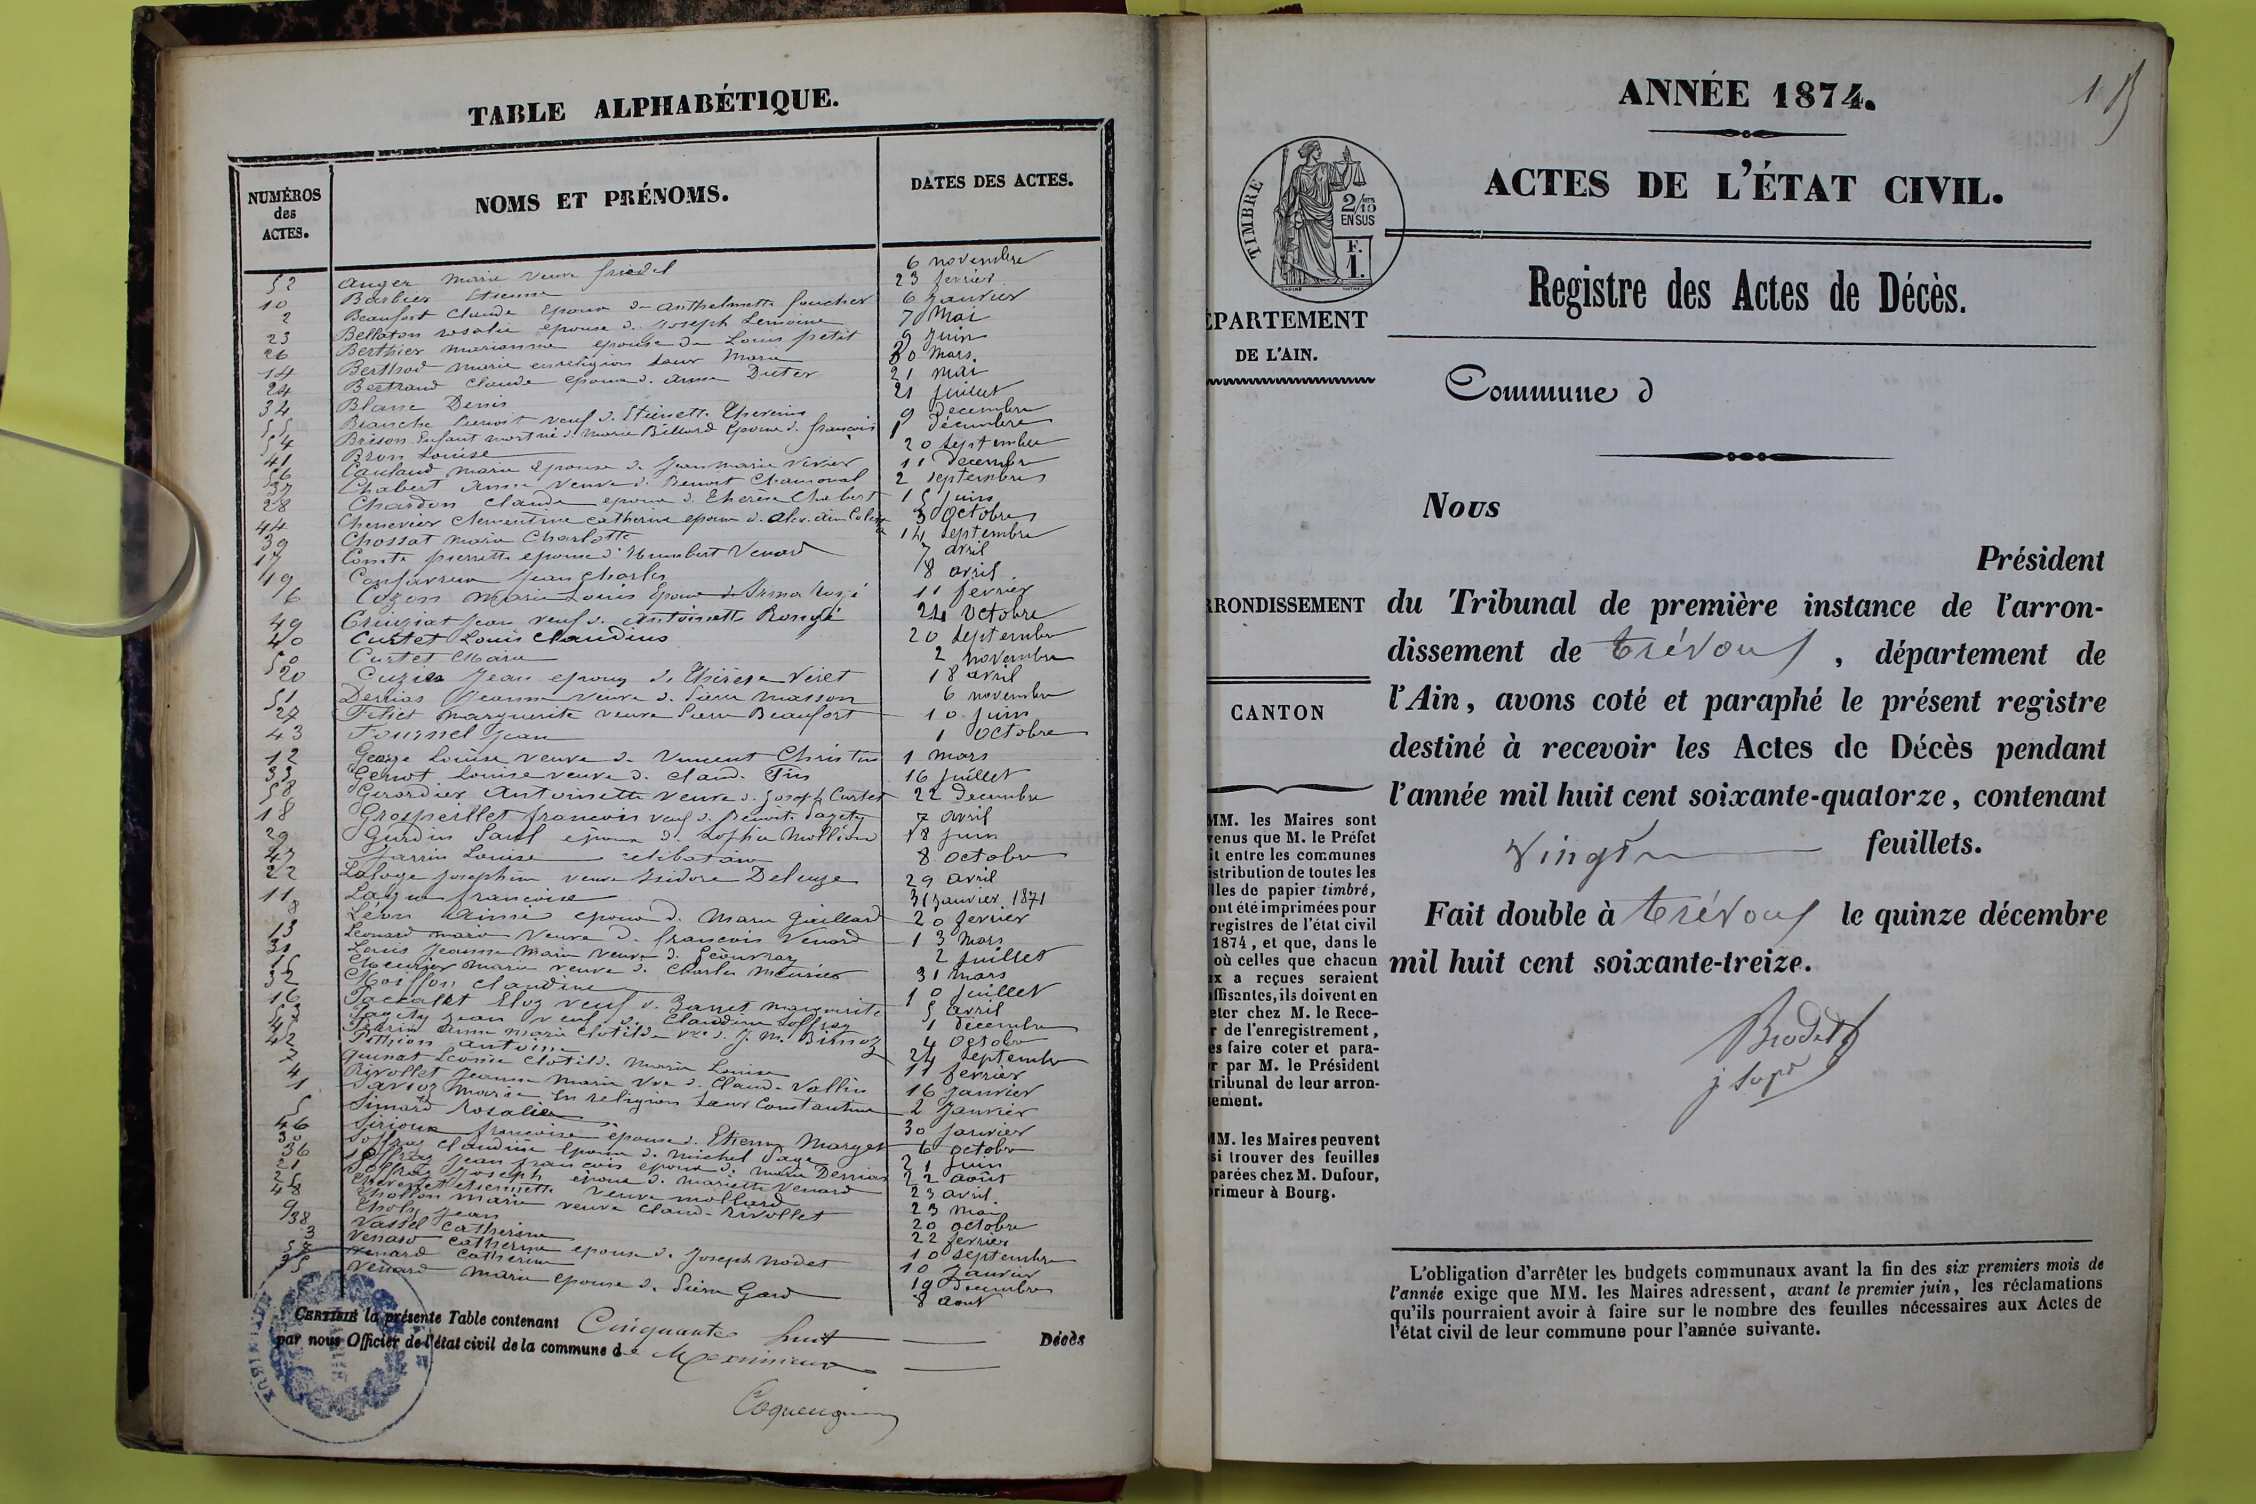 TABLE ALPHABÉTIQUE.
NUMÉROS
des
ACTES.
NOMS ET PRÉNOMS.
DATES DES ACTES.
52 Auger Marie veuve friedel 6 novembre
10 Barbier Etienne 23 fevrier
2 Beaufort Claude Epoux de Anthelmette foucher 6 Janvier
23 Bellaton rosalie épouse d. Joseph Lemoine 7 Mai
26 Berthier marianne epouse de Louis petit 9 Juin
14 Berthod marie en religion sœur Marie 30 Mars.
24 Bertrand Claude epoux d. anne Duter 21 mai
34 Blanc Denis 21 Juillet
55 Branche Benoit veuf d. Etiennette Thevenin 9 decembre
54 Brison Enfant mort né d. Marie Billiard Epouse d. françois 1 décembre
41 Bron Louise 20 septembre
56 Caillaud marie Epouse de Jean marie Vivier 11 decembre
37 Chabert Anne veuve d. Benoit Chamoval 2 septembre
28 Chardon Claude epoux d. Thérèse Chabert 15 Juin
44 Chenevier Clementine Catherine epouse d. 3 Octobre
39 Chossat marie Charlotte 14 septembre
17 Comte pierrette epouse d'Humbert Venard 7 avril
19 Confavreux Jean Charles 8 avril
6 Cozon Marie Louis Epoux 11 fevrier
49 Crugniat Jean veuf d. Antoinette 24 Octobre
40 Curtet Louis Claudius 20 septembre
50 Curtet Marie 2 novembre
20 Jean epoux d. Thérèse Veret 18 avril
51 Derrias Jeanne veuve d. Pierre masson 6 novembre
27 Filliet marguerite veuve Pierre Beaufort 10 juin
43 Fournel Jean 1 octobre
12 George Louise veuve de Vincent Christin 1 mars
33 Genot Louise veuve d. claude 16 Juillet
58 Girardier Antoinette veuve d. Joseph Curtet 22 decembre
18 Grospeillet francois veuf d. Benoite Pagety 7 avril
29 Gurdin Paul époux d. Sophie Mollion 18 juin
47 Jarrin Louise celibataire 8 octobre
22 Laloge Josephine veuve Isidore Deleuze 29 avril
11 francoise 31 janvier 1871
8 Léon Aimé epoux d. Marie Gaillard 20 fevrier
13 Leonard marie Veuve d. françois Venard 13 Mars
31 Louis Jeanne Marie veuve d. 2 Juillet
15 Meunier marie veuve d. Charles Meunier 31 mars
32 Claudine 10 Juillet
16 Paccallet Eloy veuf d. marguerite 5 avril
53 Pagety Jean veuf d. Claudine Soffray 1 decembre
45 Perrin Anne Marie Clotilde vve d. J. M. 4 octobre
42 Pithion antoine 24 septembre
7 Quinat Leonie Clotilde Marie Louise 11 fevrier
4 Rivollet Jeanne Marie Vve d. Claude Vallin 16 Janvier
1 Marie En religion sœur Constantine 2 Janvier
5 Simard Rosalie 30 janvier
46 Sirioux francoise épouse d. Etienne Marget 6 octobre
30 Soffray Claudine Epouse d. michel Page 21 juin
36 Soffray Jean francois epoux d. marie Derrias 22 août
21 Soffray Joseph époux d. mariette Venard 23 avril.
25 Thevenet etiennette veuve mollard 23 mai
48 Thollon marie veuve Claude Rivollet 20 octobre
9 Tholy Jean 22 fevrier
38 Vassel Catherine 10 septembre
3 Venard Catherine epouse d. Joseph Nodet 10 Janvier
Venard Catherine 19 decembre
35 Venard Marie epouse d. Pierre Gard 8 aout
CERTIFIÉ la présente Table contenant Cinquante huit Décès
par nous Officier de l'état civil de la commune de Meximieux
1
ANNÉE 1874.
ACTES DE L'ÉTAT CIVIL.
TIMBRE
2/10 EN SUS
F. 1.
Registre des Actes de Décès.
ÉPARTEMENT
DE L'AIN.
Commune d
Nous
Président
RRONDISSEMENT
du Tribunal de première instance de l'arron-
dissement de trévoux, département de
l'Ain, avons coté et paraphé le présent registre
CANTON
destiné à recevoir les Actes de Décès pendant
l'année mil huit cent soixante-quatorze, contenant
Vingt feuillets.
Fait double à trévoux le quinze décembre
mil huit cent soixante-treize.
MM. les Maires sont
venus que M. le Préfet
it entre les communes
istribution de toutes les
lles de papier timbré,
ont été imprimées pour
registres de l'état civil
1874, et que, dans le
où celles que chacun
ux a reçues seraient
ffisantes, ils doivent en
eter chez M. le Rece-
r de l'enregistrement,
es faire coter et para-
r par M. le Président
tribunal de leur arron-
ement.
MM. les Maires peuvent
si trouver des feuilles
parées chez M. Dufour,
primeur à Bourg.
L'obligation d'arrêter les budgets communaux avant la fin des six premiers mois de
l'année exige que MM. les Maires adressent, avant le premier juin, les réclamations
qu'ils pourraient avoir à faire sur le nombre des feuilles nécessaires aux Actes de
l'état civil de leur commune pour l'année suivante.